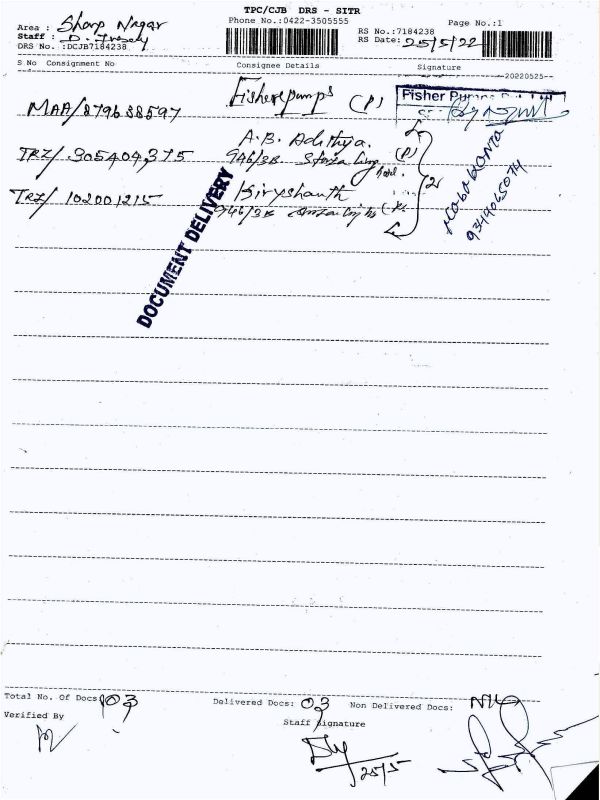 TPC/CJB DRS - SITR
Phone No.:0422-3505555
Page No.:1
Area : Sharp Nagar
Staff : D.
DRS No. :DCJB7184238
RS No.:7184238
RS Date: 25/5/22
S No Consignment No Consignee Details Signature
20220525
MAA/879638597 Fisher pumps (P) Fisher Pumps
A.B. Adithya.
TRZ/ 305404375 946/3B (P)
TRZ/ 102001215 Kiryshanth
946/3B
2
9344065074
DOCUMENT DELIVERY
Total No. Of Docs 03 Delivered Docs: 03 Non Delivered Docs: NIL
Verified By Staff Signature
25/5